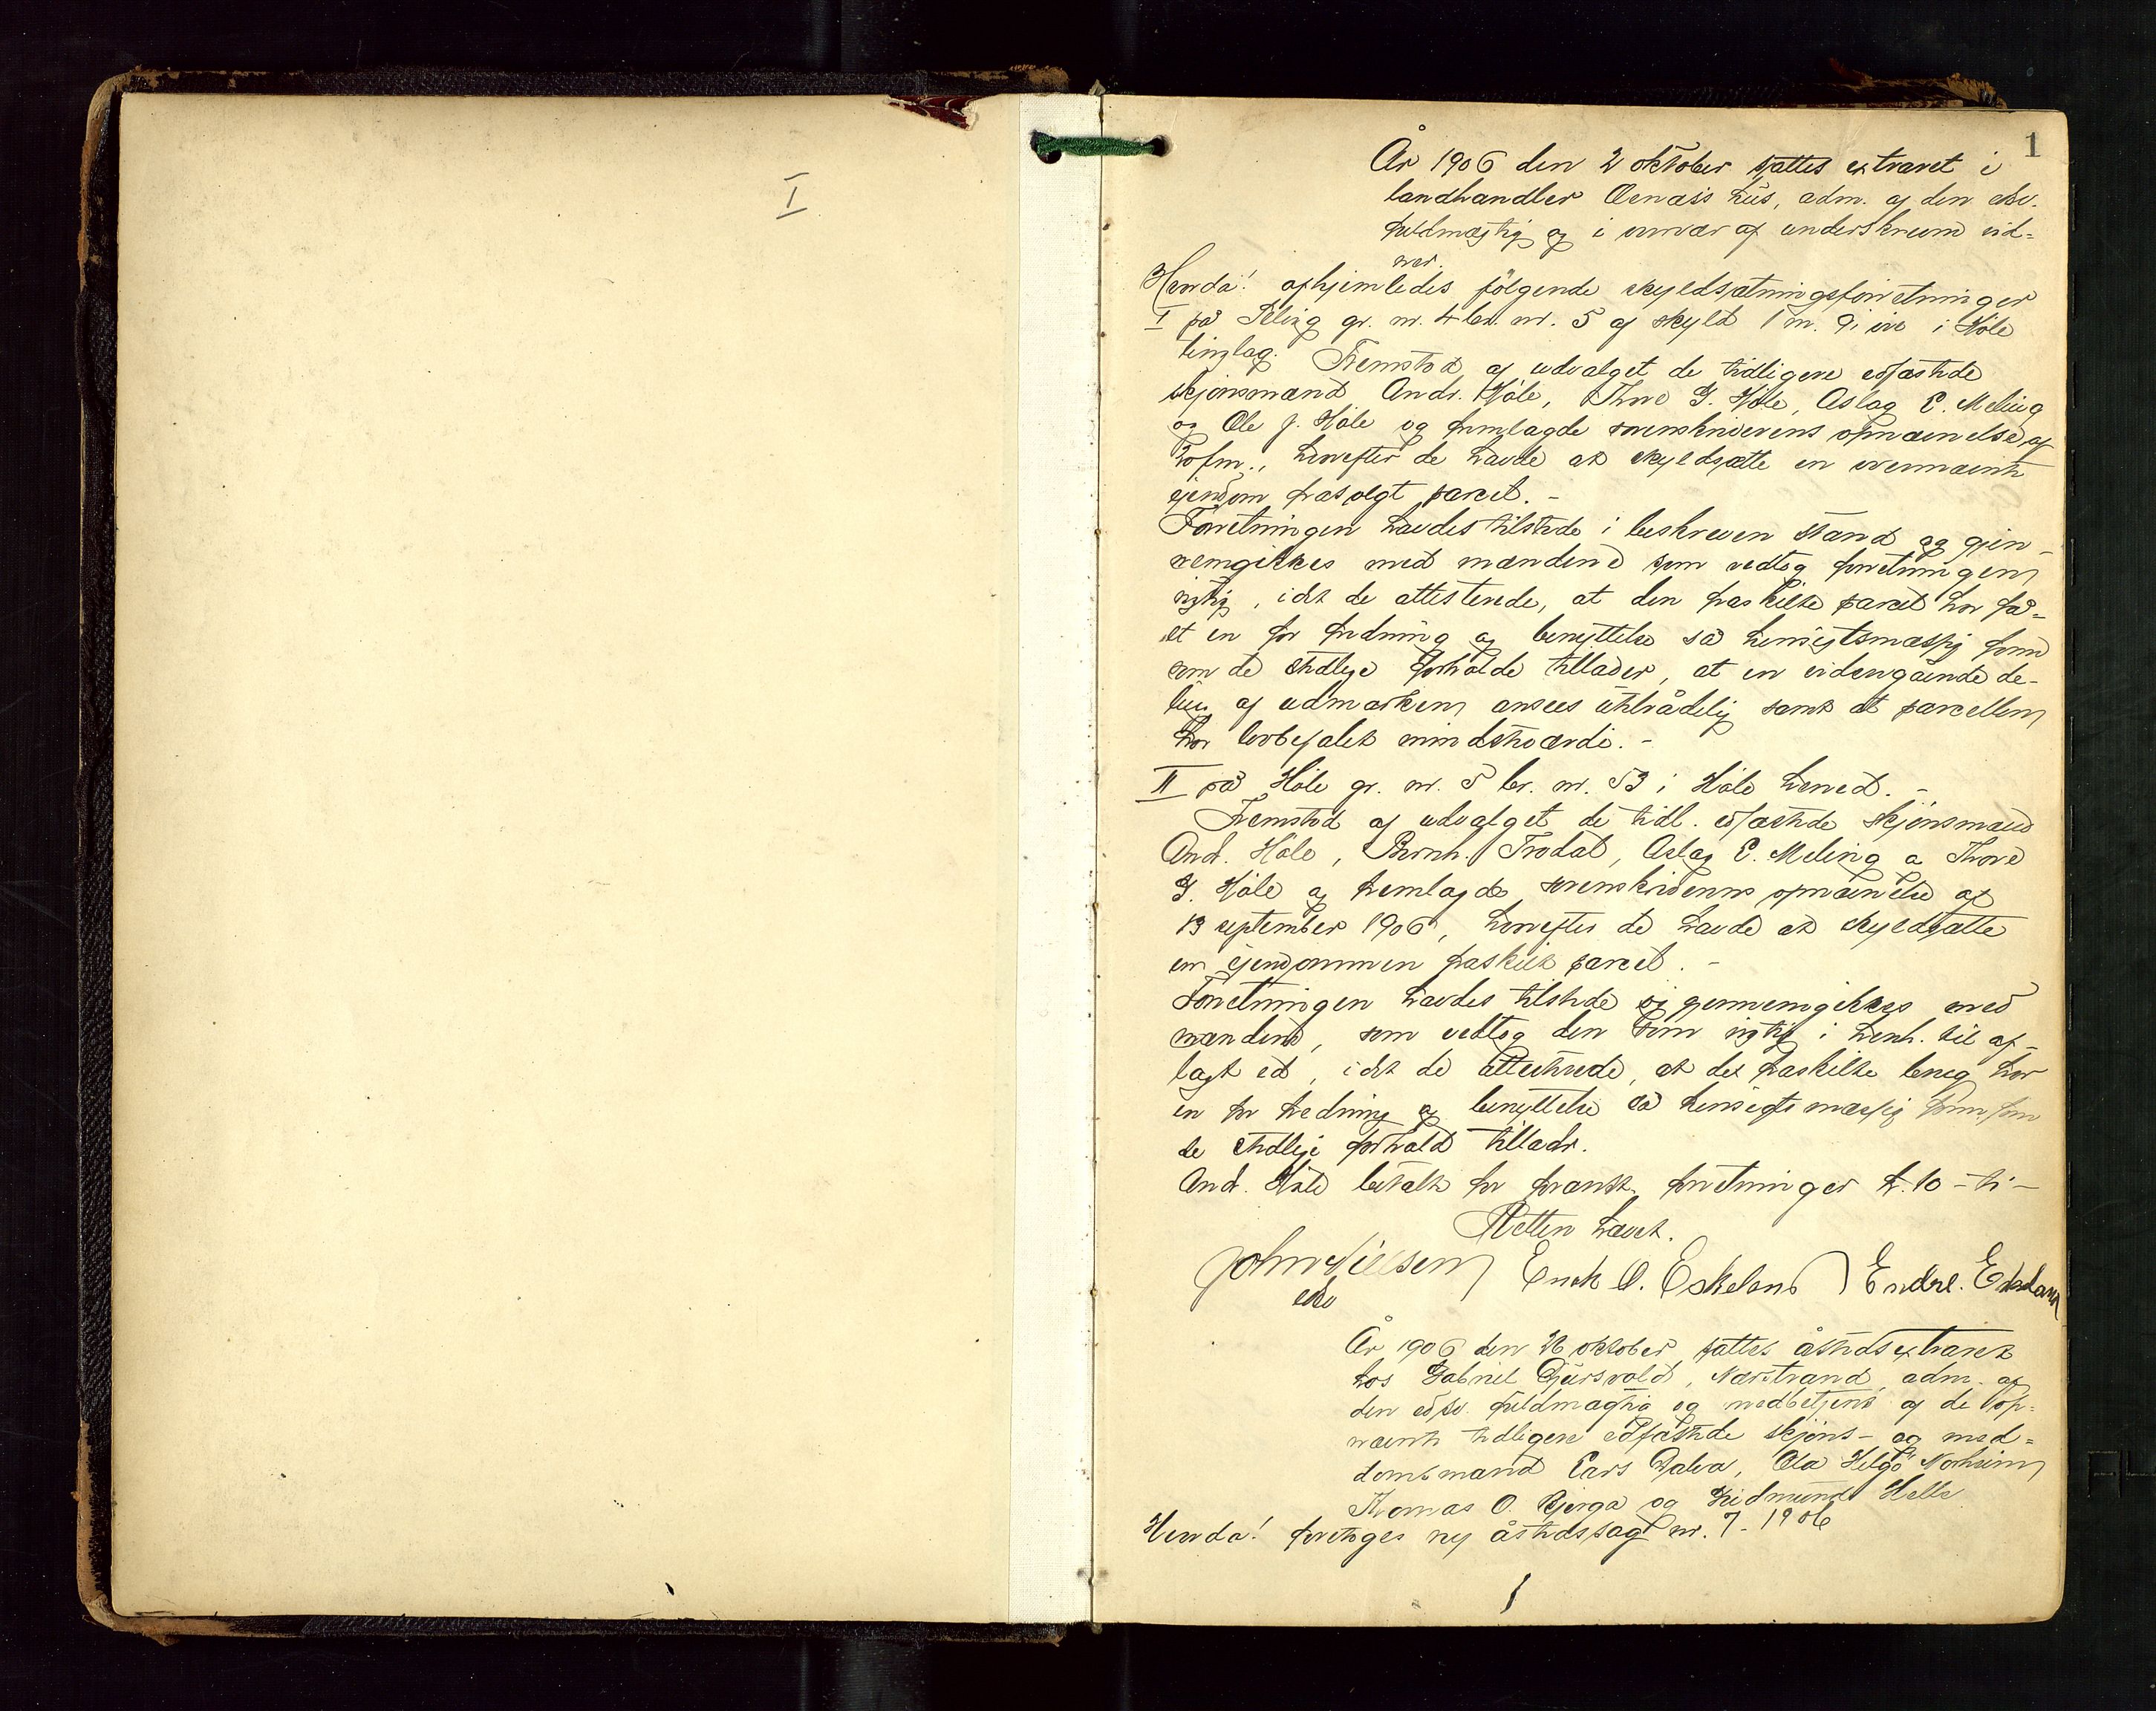 I
1
År 1906 den 2 oktober sattes extraret i
landhandler hus, adm. af den edsv.
fuldmægtig og i nærvær af underskrevne vid-
ner.
Herda! afhjemledes følgende skyldsætningsforretninger
I på gr. nr. 4 br. nr. 5 af skyld 1 m. 91 øre i Høle
tinglag. Fremstod af udvalget de tidligere edfæstede
skjønsmænd Andr. Høle, Thore G. Høle, Aslag E. Meling
og Ole J. Høle og fremlagde sorenskriverens opnævnelse af
hvorefter de havde at skyldsætte en ovennævnte
ejendom frasolgt parcel. -
Forretningen havdes tilstede i beskreven stand og gjen-
nemgikkes med mændene som vedtog forretningen
rigtig, idet de attesterede, at den fraskilte parcel har få-
et en for fredning og benyttelse så hensigtsmæssig form
som de stedlige forholde tillader, at en videregående de-
ling af udmarken ansees utilrådelig samt at parcellen
har lovbefalet mindsteværdi. -
II på Høle gr. nr. 5 br. nr. 53 i Høle herred. -
Fremstod af udvalget de tidl. edfæstede skjønsmænd
And. Høle, Bernh. Frodal, Aslag E. Meling og Thore
G. Høle og fremlagde sorenskriverens opnævnelse af
13 september 1906, hvorefter de havde at skyldsætte
en ejendommen fraskilt parcel. -
Forretningen havdes tilstede og gjennemgikkes med
mændene, som vedtog den som rigtig i henh. til af-
lagt ed, idet de attesterede, at det fraskilte brug har
en for fredning og benyttelse så hensigtsmæssig form som
de stedlige forhold tillader.
And. Høle betalte for foranst. forretninger kr. 10 - ti -
Retten hævet.
John Nielsen Enok O. Eskeland Endre. Eskeland
edsv
År 1906 den 26 oktober sattes åstedsextraret
hos Gabriel Gjursvold, Nærstrand, adm. af
den edsv. fuldmægtig og medbetjent af de op-
nævnte tidligere edfæstede skjøns- og med-
domsmænd Lars Dalva, Ola Helgø Norheim
Thomas O. Bjerga og Gudmund Helle
Herda! foretoges ny åstedssag nr. 7 - 1906
1